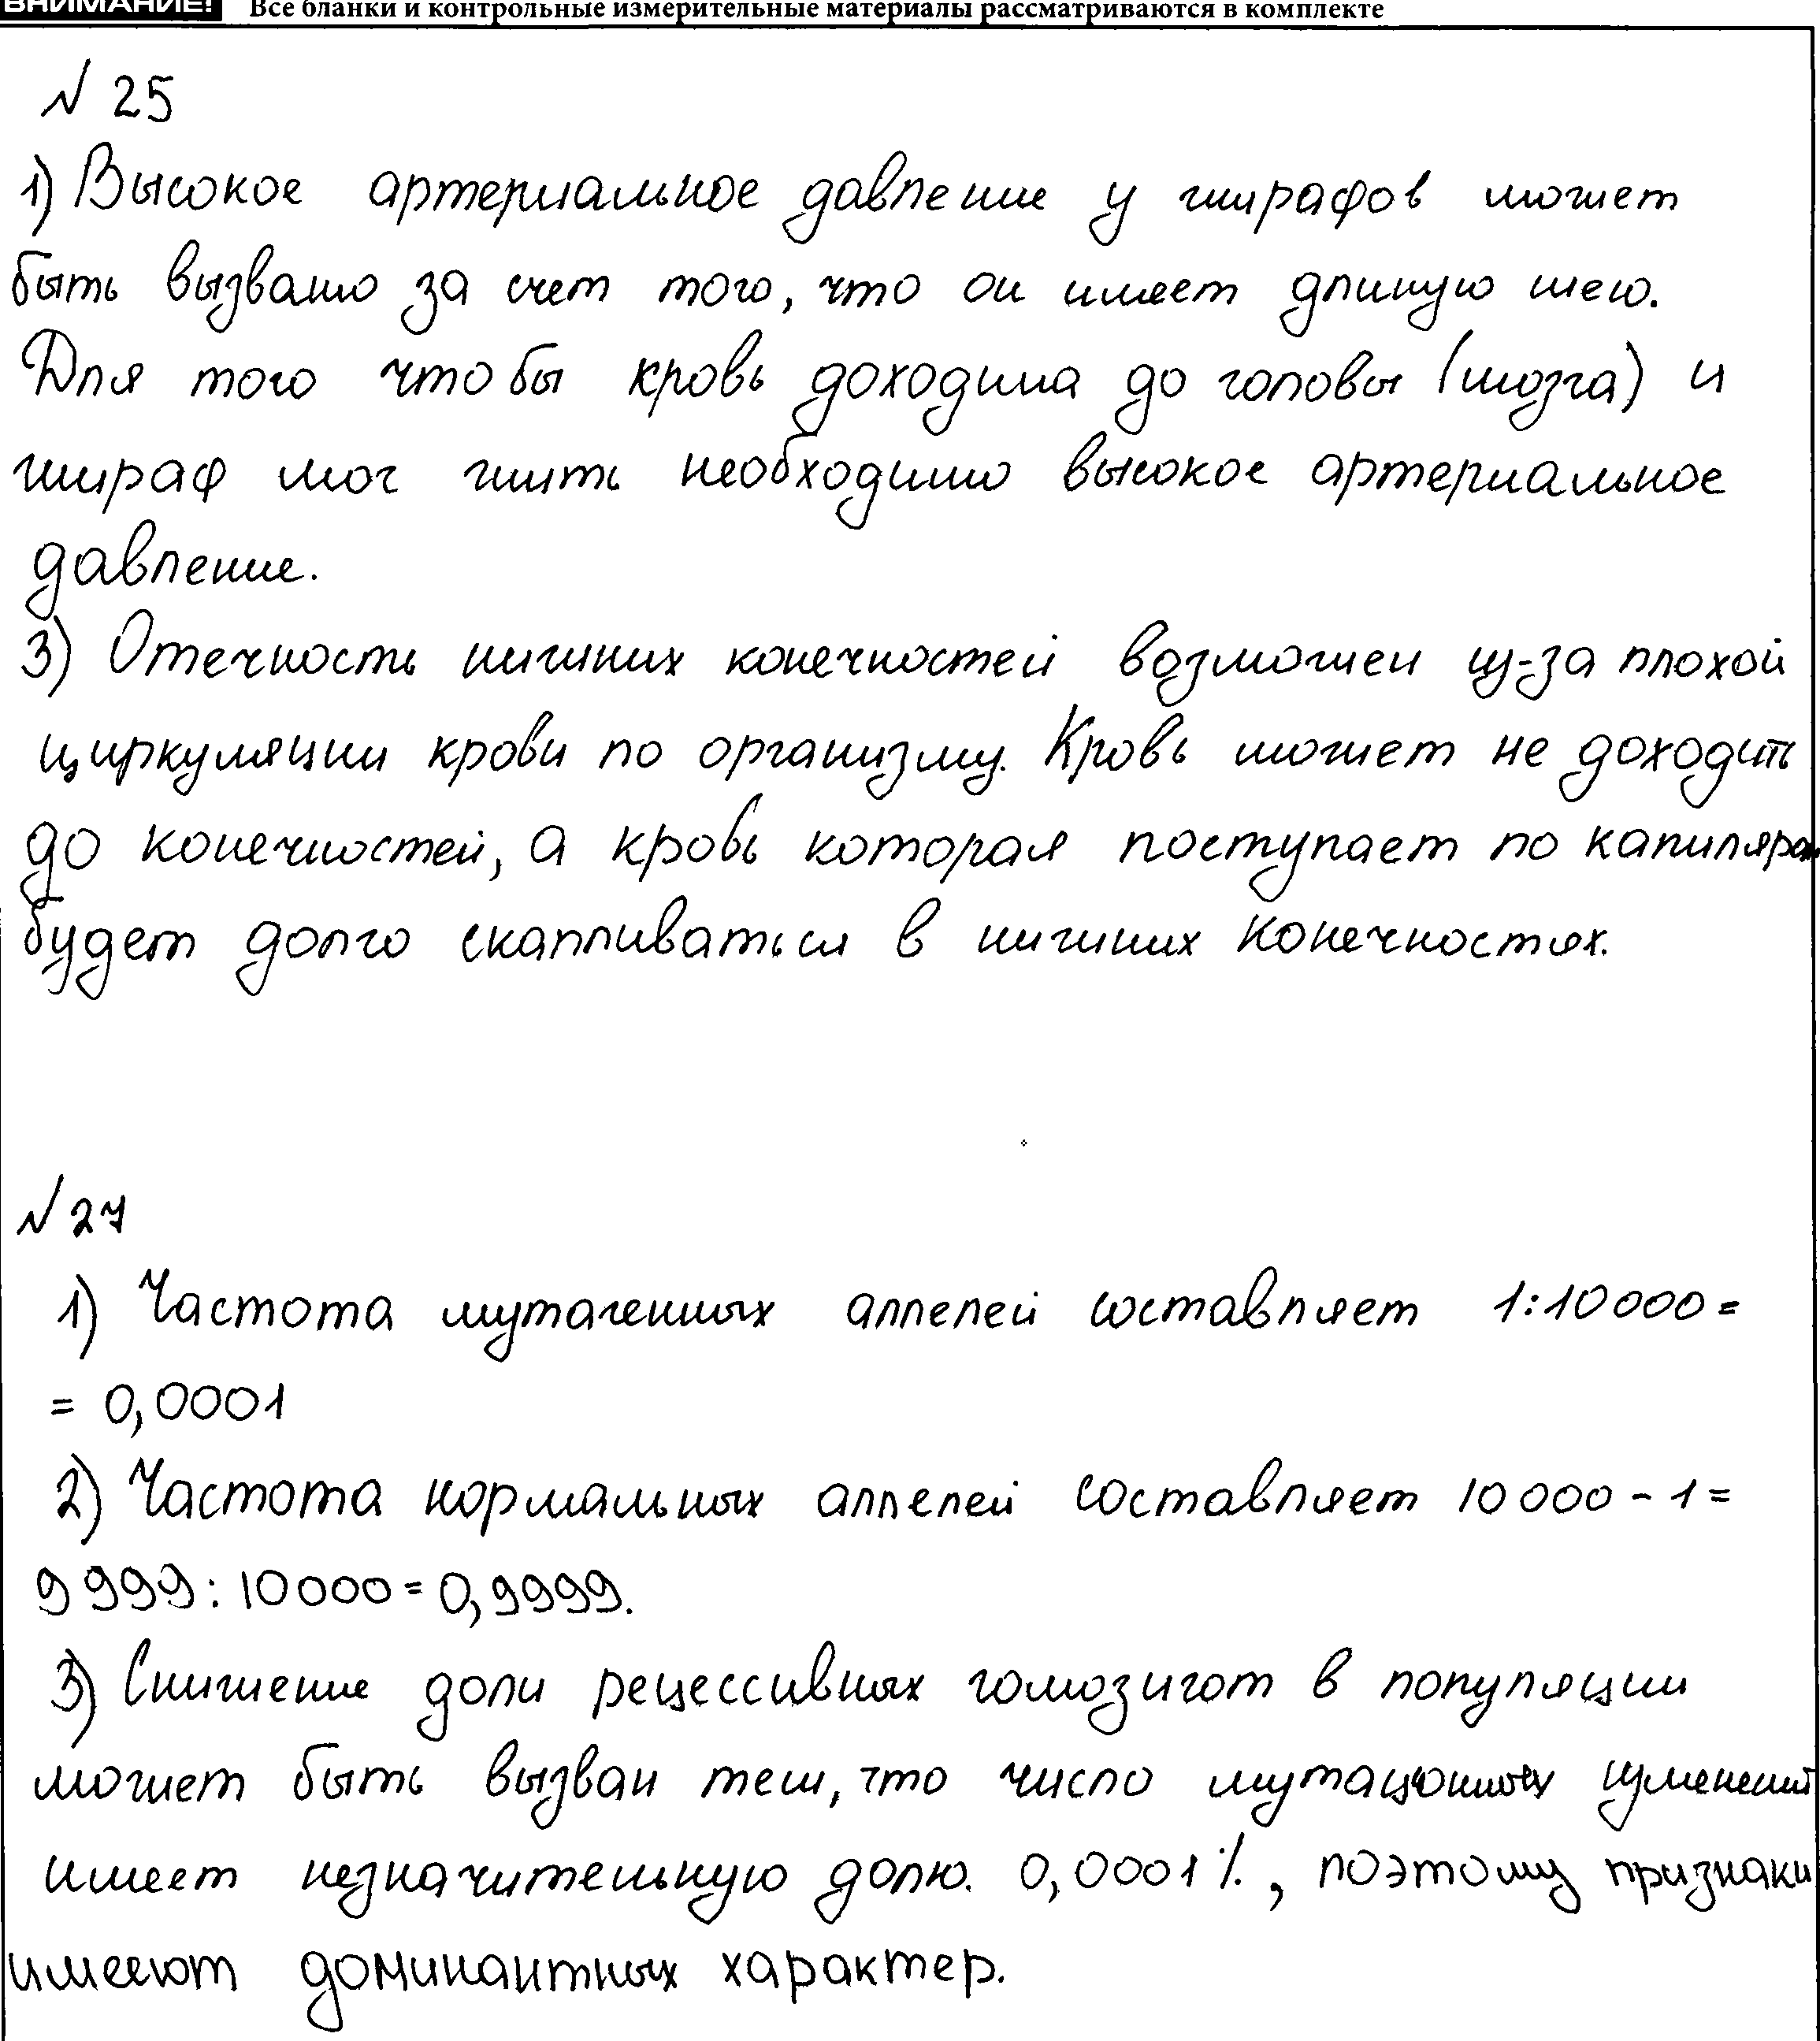 ВНИМАНИЕ! Все бланки и контрольные измерительные материалы рассматриваются в комплекте
№ 25
1) Высокое артериальное давление у жирафов может
быть вызвано за счет того, что он имеет длиную шею.
Для того чтобы кровь доходила до головы (мозга) и
жираф мог жить необходимо высокое артериальное
давление.
3) Отечность нижних конечностей возможен из-за плохой
циркуляции крови по организму. Кровь может не доходить
до конечностей, а кровь которая поступает по капилярам
будет долго скапливаться в нижних конечностях.
№ 27
1) Частота мутагенных аллелей составляет 1:10000=
= 0,0001
2) Частота нормальных аллелей составляет 10000-1=
9999:10000=0,9999.
3) Снижение доли рецессивных гомозигот в популяции
может быть вызван тем, что число мутационных изменений
имеет незначительную долю. 0,0001%, поэтому признаки
имееют доминантных характер.